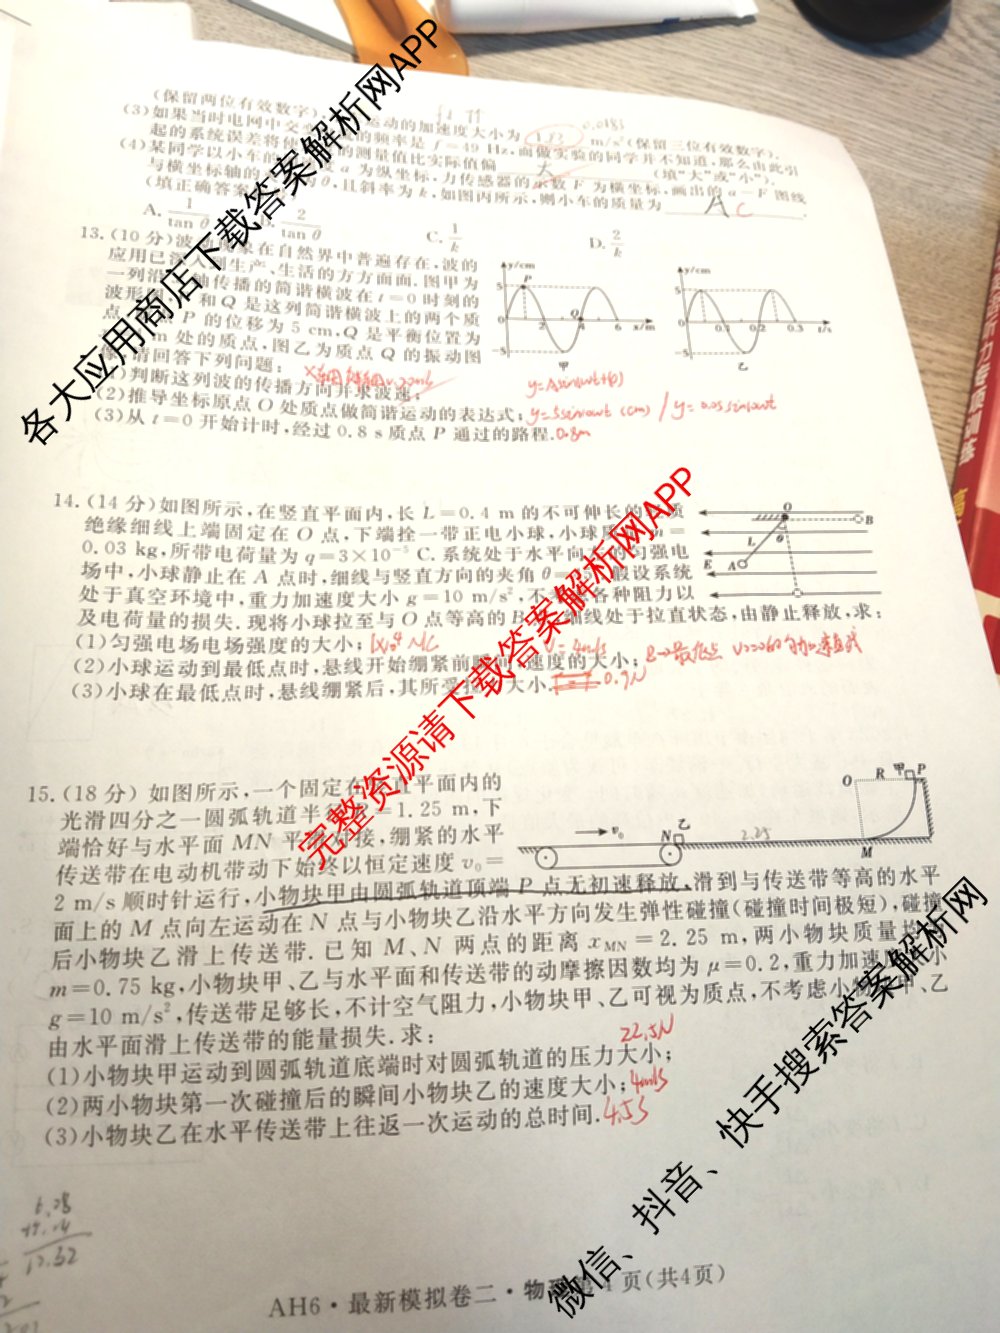 (保留两位有效数字).
(3)如果当时电网中交 运动的加速度大小为 1.52 m/s²(保留三位有效数字).
的频率是 f=49 Hz,而做实验的同学并不知道,那么由此引
起的系统误差将使 的测量值比实际值偏 大 (填“大”或“小”).
(4)某同学以小车的 a 为纵坐标,力传感器的示数 F 为横坐标,画出的 a-F 图线
与横坐标轴的 θ,且斜率为 k,如图丙所示,则小车的质量为 A C .
(填正确答案
A. 1/tan θ 2/tan θ C. 1/k D. 2/k
13.(10分)波 象在自然界中普遍存在,波的
应用已深入到生产、生活的方方面面.图甲为
一列沿 轴传播的简谐横波在 t=0 时刻的
波形图, 和 Q 是这列简谐横波上的两个质
点, P 的位移为 5 cm,Q 是平衡位置为
m 处的质点,图乙为质点 Q 的振动图
像,请回答下列问题:
(1)判断这列波的传播方向并求波速;
(2)推导坐标原点 O 处质点做简谐运动的表达式;
(3)从 t=0 开始计时,经过 0.8 s 质点 P 通过的路程. 0.8m
y=Asin(ωt+φ)
y/cm
5
P
0
2
Q
6
x/m
-5
甲
y/cm
5
0
0.1
0.2
0.3
t/s
-5
乙
14.(14分)如图所示,在竖直平面内,长 L=0.4 m 的不可伸长的 质
绝缘细线上端固定在 O 点,下端拴一带正电小球,小球质 m=
0.03 kg,所带电荷量为 q=3×10⁻⁵ C.系统处于水平向 的匀强电
场中,小球静止在 A 点时,细线与竖直方向的夹角 θ= 假设系统
处于真空环境中,重力加速度大小 g=10 m/s²,不考虑各种阻力以
及电荷量的损失.现将小球拉至与 O 点等高的 B 细线处于拉直状态,由静止释放,求:
(1)匀强电场电场强度的大小;
(2)小球运动到最低点时,悬线开始绷紧前瞬间 速度的大小; v=4m/s
(3)小球在最低点时,悬线绷紧后,其所受拉 大小. 0.9N
O
B
θ
L
E
A
15.(18分) 如图所示,一个固定在竖直平面内的
光滑四分之一圆弧轨道半径 R=1.25 m,下
端恰好与水平面 MN 平滑对接,绷紧的水平
传送带在电动机带动下始终以恒定速度 v₀=
2 m/s 顺时针运行,小物块甲由圆弧轨道顶端 P 点无初速释放,滑到与传送带等高的水平
面上的 M 点向左运动在 N 点与小物块乙沿水平方向发生弹性碰撞(碰撞时间极短),碰撞
后小物块乙滑上传送带. 已知 M、N 两点的距离 xMN=2.25 m,两小物块质量均
m=0.75 kg,小物块甲、乙与水平面和传送带的动摩擦因数均为 μ=0.2,重力加速度 小
g=10 m/s²,传送带足够长,不计空气阻力,小物块甲、乙可视为质点,不考虑小物块甲、乙
由水平面滑上传送带的能量损失.求:
(1)小物块甲运动到圆弧轨道底端时对圆弧轨道的压力大小; 22.5N
(2)两小物块第一次碰撞后的瞬间小物块乙的速度大小; 4m/s
(3)小物块乙在水平传送带上往返一次运动的总时间. 4.5S
O
R
甲
P
v₀
N
乙
2.25
M
AH6·最新模拟卷二·物理 第4页(共4页)
各大应用商店下载答案解析网APP
完整资源请下载答案解析网APP
微信、抖音、快手搜索答案解析网